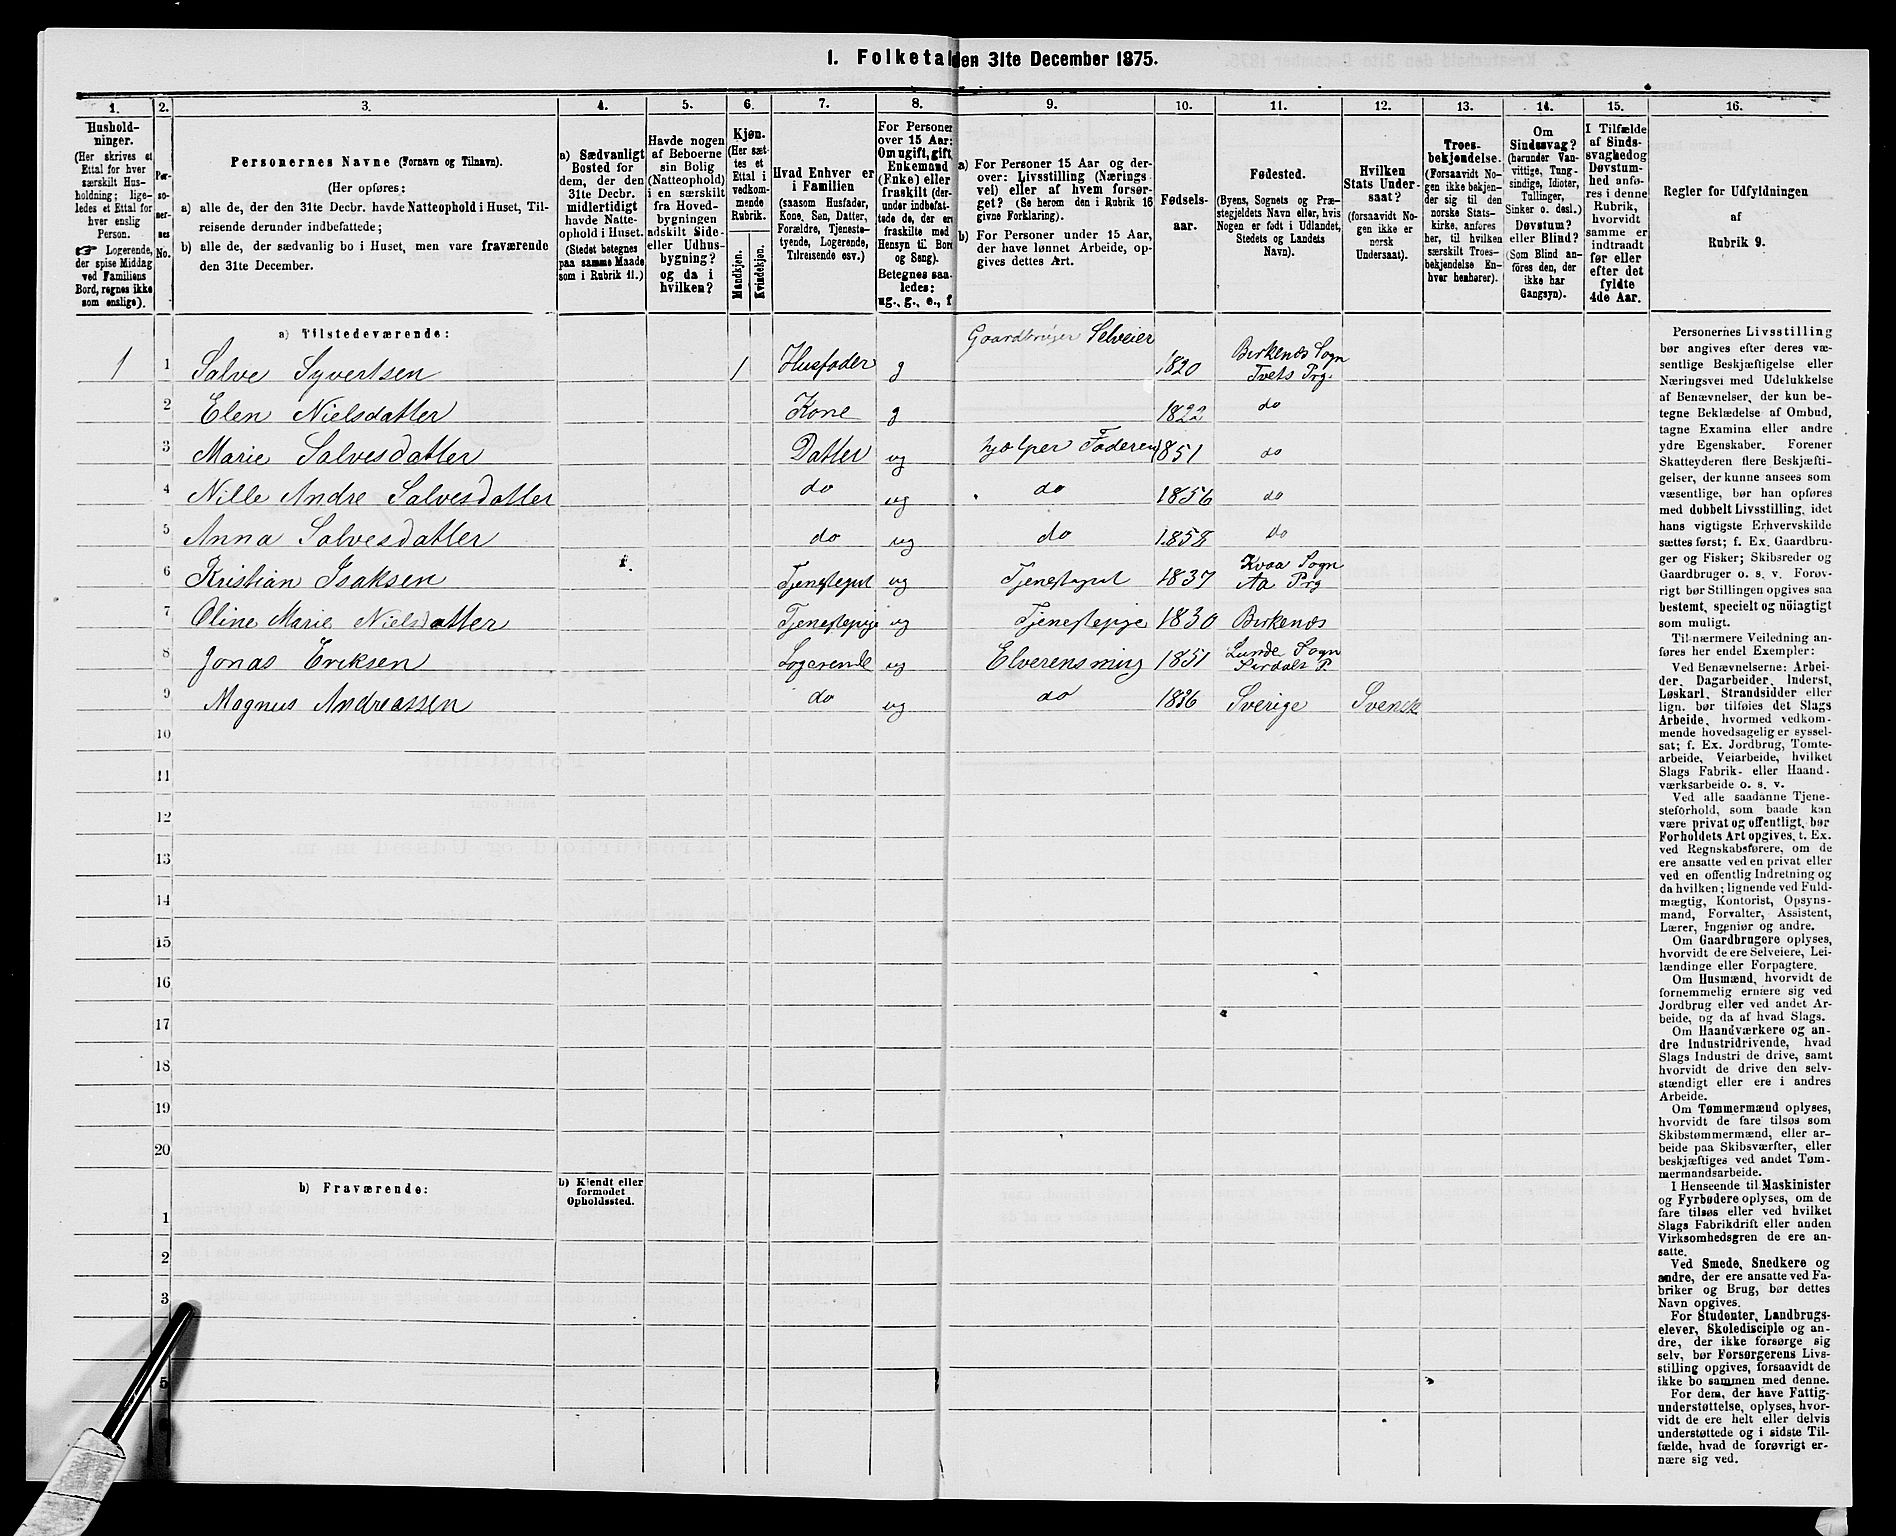 1. Folketal den 31te December 1875.
1. 2. 3. 4. 5. 6. 7. 8. 9. 10. 11. 12. 13. 14. 15. 16.
Hushold-
ninger.
(Her skrives et
Ettal for hver
særskilt Hus-
holdning; lige-
ledes et Ettal for
hver enslig
Person.
☞ Logerende,
der spise Middag
ved Familiens
Bord, regnes ikke
som enslige).
Per-
so-
ner-
nes
No.
Personernes Navne (Fornavn og Tilnavn).
(Her opføres:
a) alle de, der den 31te Decbr. havde Natteophold i Huset, Til-
reisende derunder indbefattede;
b) alle de, der sædvanlig bo i Huset, men vare fraværende
den 31te December.
a) Sædvanligt
Bosted for
dem, der den
31te Decbr.
midlertidigt
havde Natte-
ophold i Huset.
(Stedet betegnes
paa samme Maade
som i Rubrik 11.)
Havde nogen
af Beboerne
sin Bolig
(Natteophold)
i en særskilt
fra Hoved-
bygningen
adskilt Side-
eller Udhus-
bygning?
og da i
hvilken?
Kjøn.
(Her sæt-
tes et
Ettal i
vedkom-
mende
Rubrik.
Mandkjøn.
Kvindekjøn.
Hvad Enhver er
i Familien
(saasom Husfader,
Kone, Søn, Datter,
Forældre, Tjeneste-
tyende, Logerende,
Tilreisende osv.)
For Personer
over 15 Aar:
Om ugift, gift,
Enkemand
(Enke) eller
fraskilt (der-
under indbefat-
tede de, der ere
fraskilte med
Hensyn til Bord
og Seng).
Betegnes saa-
ledes:
ug., g., e., f
a) For Personer 15 Aar og der-
over: Livsstilling (Nærings-
vei) eller af hvem forsør-
get? (Se herom den i Rubrik 16
givne Forklaring).
b) For Personer under 15 Aar,
der have lønnet Arbeide, op-
gives dettes Art.
Fødsels-
aar.
Fødested.
(Byens, Sognets og Præ-
stegjeldets Navn eller, hvis
Nogen er født i Udlandet,
Stedets og Landets
Navn).
Hvilken
Stats Under-
saat?
(forsaavidt No-
gen ikke er
norsk
Undersaat).
Troes-
bekjendelse.
(Forsaavidt No-
gen ikke bekjen-
der sig til den
norske Stats-
kirke, anføres
her, til hvilken
særskilt Troes-
bekjendelse En-
hver henhører).
Om
Sindssvag?
(herunder Van-
vittige, Tung-
sindige, Idioter,
Tullinger,
Sinker o. desl.)
Døvstum?
eller Blind?
(Som Blind an-
føres den, der
ikke har
Gangsyn).
I Tilfælde
af Sinds-
svaghed og
Døvstum-
hed anfø-
res i denne
Rubrik,
hvorvidt
samme er
indtraadt
før eller
efter det
fyldte
4de Aar.
Regler for Udfyldningen
af
Rubrik 9.
a) Tilstedeværende:
Gaardbruger Selveier
1 1 Salve Syvertsen 1 Husfader g 1820 Birkenæs Sogn
Tvets Prg
2 Elen Nielsdatter Kone g 1822 do
3 Marie Salvesdatter Datter ug hjælper Faderen 1851 do
4 Nille Andre Salvesdatter do ug do 1856 do
5 Anna Salvesdatter do ug do 1858 do
6 Kristian Isaksen Tjenestegut ug Tjenestegut 1837 Kvaa Sogn
Aa Prg
7 Oline Marie Nielsdatter Tjenestepige ug Tjenestepige 1830 Birkenæs
8 Jonas Eriksen Logerende ug 1851 Lunde Sogn
Sirdals P
9 Magnus Andreassen do ug do 1836 Sverige Svensk
10
11
12
13
14
15
16
17
18
19
20
b) Fraværende:
b) Kjendt eller
formodet
Opholdssted.
1
2
3
5
Personernes Livsstilling
bør angives efter deres væ-
sentlige Beskjæftigelse eller
Næringsvei med Udelukkelse
af Benævnelser, der kun be-
tegne Beklædelse af Ombud,
tagne Examina eller andre
ydre Egenskaber. Forener
Skatteyderen flere Beskjæfti-
gelser, der kunne ansees som
væsentlige, bør han opføres
med dobbelt Livsstilling, idet
hans vigtigste Erhvervskilde
sættes først; f. Ex. Gaardbru-
ger og Fisker; Skibsreder og
Gaardbruger o. s. v. Forøv-
rigt bør Stillingen opgives saa
bestemt, specielt og nöiagtigt
som muligt.
Til nærmere Veiledning an-
føres her endel Exempler:
Ved Benævnelserne: Arbei-
der, Dagarbeider, Inderst,
Løskarl, Strandsidder eller
lign. bør tilføies det Slags
Arbeide, hvormed vedkom-
mende hovedsagelig er syssel-
sat; f. Ex. Jordbrug, Tomte-
arbeide, Veiarbeide, hvilket
Slags Fabrik- eller Haand-
værksarbeide o. s. v.
Ved alle saadanne Tjene-
steforhold, som baade kan
være privat og offentligt, bør
Forholdets Art opgives, t. Ex.
ved Regnskabsførere, om de
ere ansatte ved en privat eller
ved en offentlig Indretning og
da hvilken; lignende ved Fuld-
mægtig, Kontorist, Opsyns-
mand, Forvalter, Assistent,
Lærer, Ingeniør og andre.
Om Gaardbrugere oplyses,
hvorvidt de ere Selveiere, Lei-
lændinge eller Forpagtere.
Om Husmænd, hvorvidt de
fornemmelig ernære sig ved
Jordbrug eller ved andet Ar-
beide, og da af hvad Slags.
Om Haandværkere og an-
dre Industridrivende, hvad
Slags Industri de drive, samt
hvorvidt de drive den selv-
stændigt eller ere i andres
Arbeide.
Om Tømmermænd oplyses,
hvorvidt de fare tilsøs som
Skibstømmermænd, eller ar-
beide paa Skibsværfter, eller
beskjæftiges ved andet Tøm-
mermandsarbeide.
I Henseende til Maskinister
og Fyrbødere oplyses, om de
fare tilsøs eller ved hvilket
Slags Fabrikdrift eller anden
Virksomhedsgren de ere an-
satte.
Ved Smede, Snedkere og
andre, der ere ansatte ved Fa-
briker og Brug, bør dettes
Navn opgives.
For Studenter, Landbrugs-
elever, Skoledisciple og an-
dre, der ikke forsørge sig
selv, bør Forsørgerens Livs-
stilling opgives, forsaavidt de
ikke bo sammen med denne.
For dem, der have Fattig-
understøttelse, oplyses, hvor-
vidt de ere helt eller delvis
understøttede og i sidste Til-
fælde, hvad de forøvrigt er-
nære sig ved.